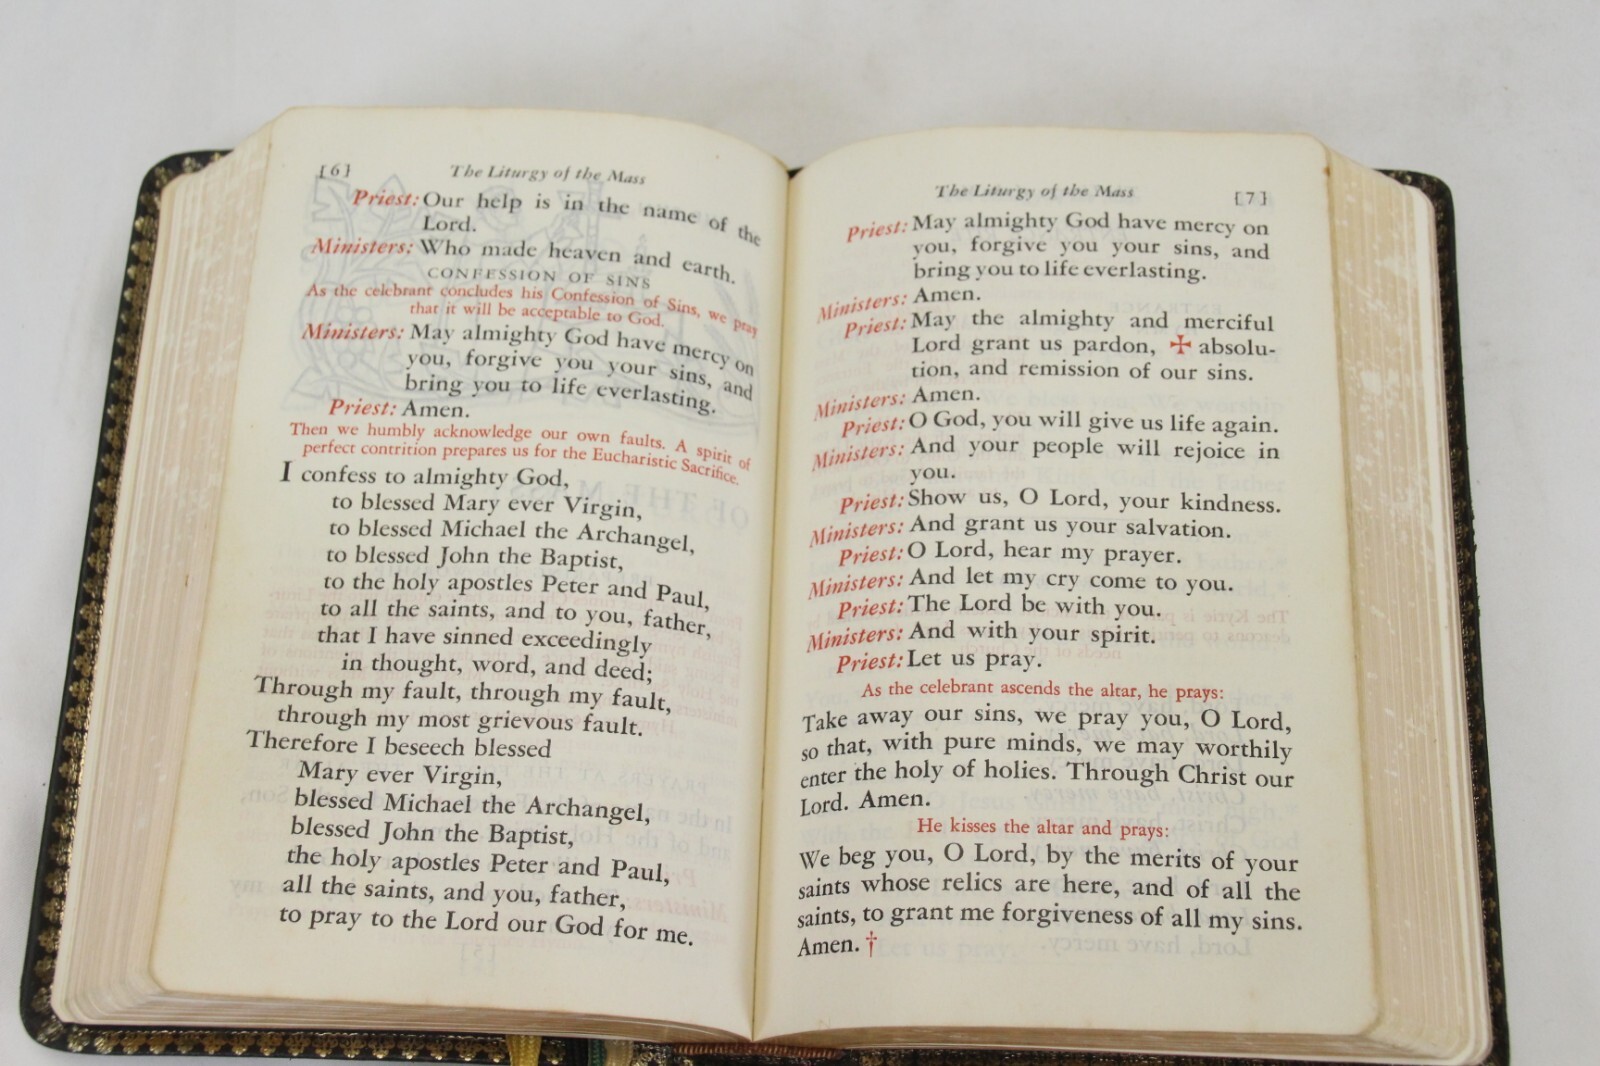 [6] The Liturgy of the Mass
Priest: Our help is in the name of the
Lord.
Ministers: Who made heaven and earth.
CONFESSION OF SINS
As the celebrant concludes his Confession of Sins, we pray
that it will be acceptable to God.
Ministers: May almighty God have mercy on
you, forgive you your sins, and
bring you to life everlasting.
Priest: Amen.
Then we humbly acknowledge our own faults. A spirit of
perfect contrition prepares us for the Eucharistic Sacrifice.
I confess to almighty God,
to blessed Mary ever Virgin,
to blessed Michael the Archangel,
to blessed John the Baptist,
to the holy apostles Peter and Paul,
to all the saints, and to you, father,
that I have sinned exceedingly
in thought, word, and deed;
Through my fault, through my fault,
through my most grievous fault.
Therefore I beseech blessed
Mary ever Virgin,
blessed Michael the Archangel,
blessed John the Baptist,
the holy apostles Peter and Paul,
all the saints, and you, father,
to pray to the Lord our God for me.
The Liturgy of the Mass [7]
Priest: May almighty God have mercy on
you, forgive you your sins, and
bring you to life everlasting.
Ministers: Amen.
Priest: May the almighty and merciful
Lord grant us pardon, ✠ absolu-
tion, and remission of our sins.
Ministers: Amen.
Priest: O God, you will give us life again.
Ministers: And your people will rejoice in
you.
Priest: Show us, O Lord, your kindness.
Ministers: And grant us your salvation.
Priest: O Lord, hear my prayer.
Ministers: And let my cry come to you.
Priest: The Lord be with you.
Ministers: And with your spirit.
Priest: Let us pray.
As the celebrant ascends the altar, he prays:
Take away our sins, we pray you, O Lord,
so that, with pure minds, we may worthily
enter the holy of holies. Through Christ our
Lord. Amen.
He kisses the altar and prays:
We beg you, O Lord, by the merits of your
saints whose relics are here, and of all the
saints, to grant me forgiveness of all my sins.
Amen. †